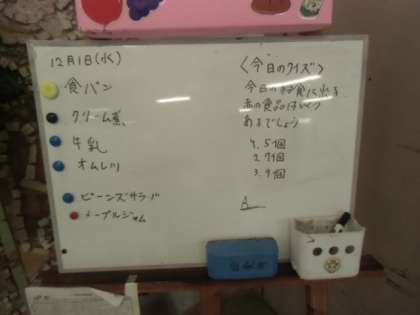 12月1日(水)
食パン
クリーム煮
牛乳
オムレツ
ビーンズサラダ
メープルジャム
〈今日のクイズ〉
今日の給食に出る
赤の食品はいくつ
あるでしょう
1. 5個
2. 7個
3. 9個
A